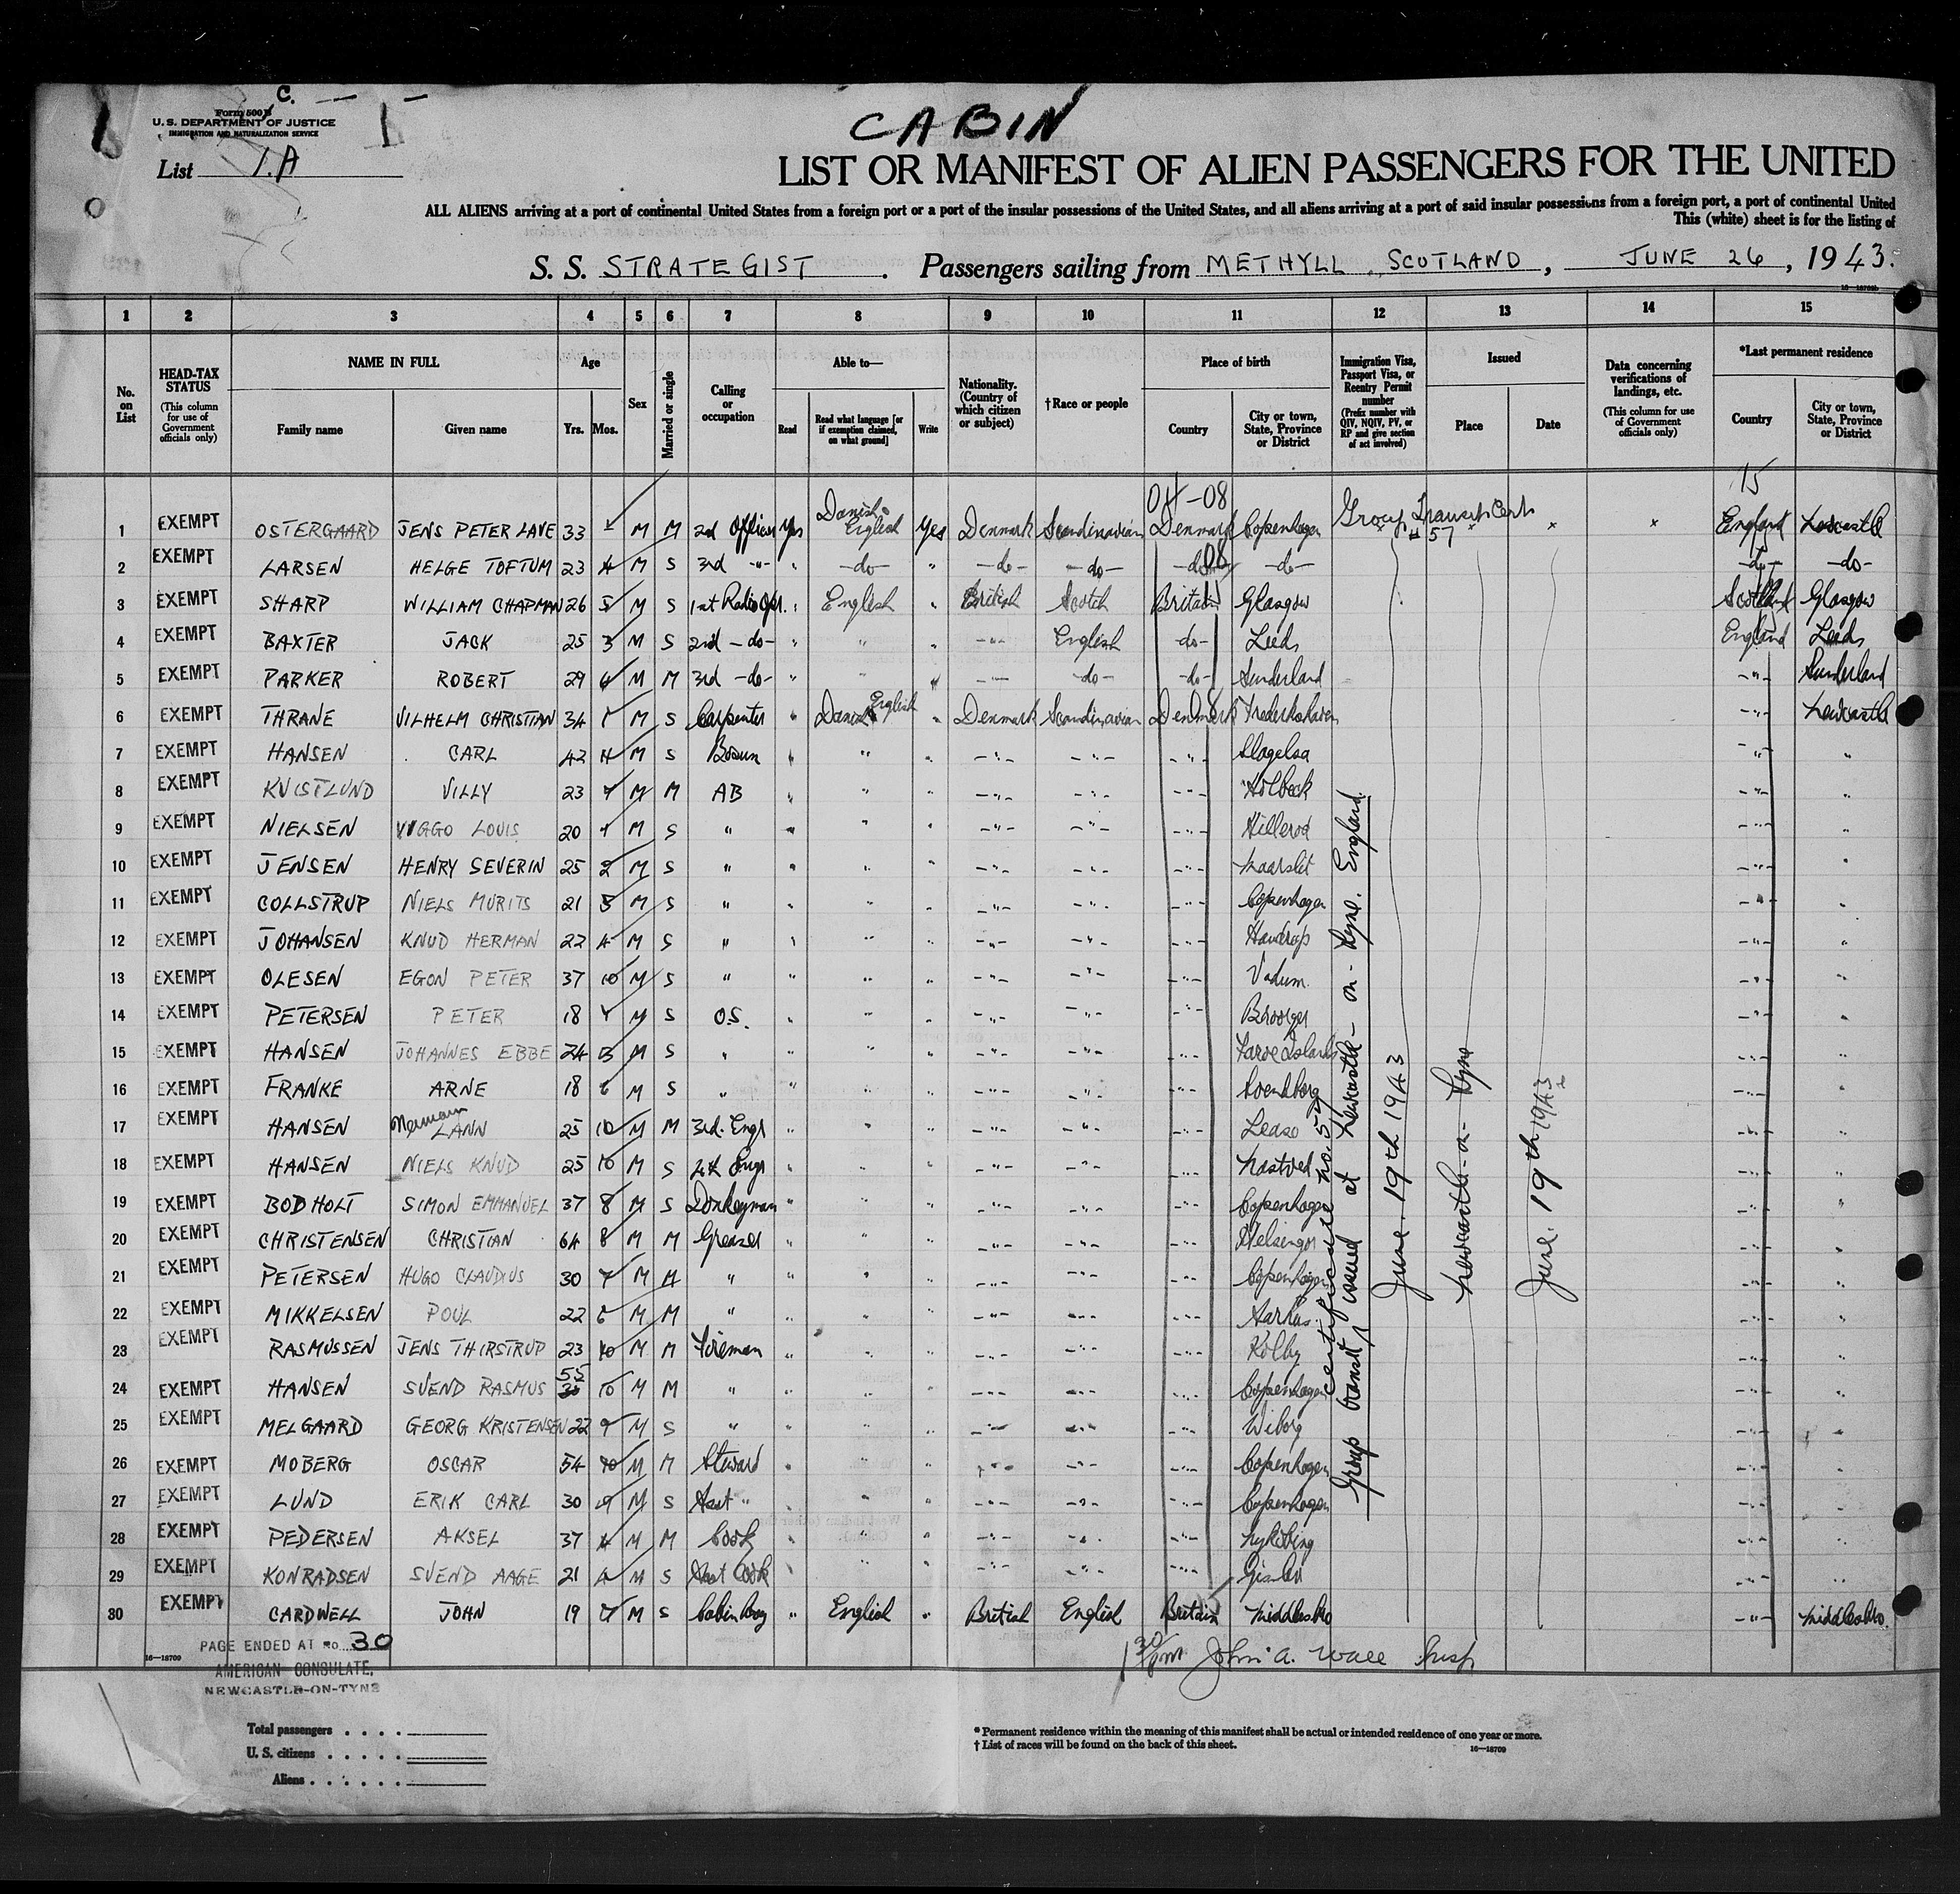 C. — 1 —
Form 500 B
U. S. DEPARTMENT OF JUSTICE
IMMIGRATION AND NATURALIZATION SERVICE
CABIN
List 1.A
LIST OR MANIFEST OF ALIEN PASSENGERS FOR THE UNITED
ALL ALIENS arriving at a port of continental United States from a foreign port or a port of the insular possessions of the United States, and all aliens arriving at a port of said insular possessions from a foreign port, a port of continental United
This (white) sheet is for the listing of
S. S. STRATEGIST . Passengers sailing from METHYLL, SCOTLAND, JUNE 26, 1943.
1 2 3 4 5 6 7 8 9 10 11 12 13 14 15
No. on List
HEAD-TAX STATUS (This column for use of Government officials only)
NAME IN FULL
Family name
Given name
Age
Yrs. Mos.
Sex
Married or single
Calling or occupation
Able to—
Read
Read what language [or if exemption claimed, on what ground]
Write
Nationality. (Country of which citizen or subject)
†Race or people
Place of birth
Country
City or town, State, Province or District
Immigration Visa, Passport Visa, or Reentry Permit number (Prefix number with QIV, NQIV, PV, or RP and give section of act involved)
Issued
Place
Date
Data concerning verifications of landings, etc. (This column for use of Government officials only)
*Last permanent residence
Country
City or town, State, Province or District
15
04-08
1 EXEMPT OSTERGAARD JENS PETER LAVE 33 M M 2nd Officer Yes Danish English Yes Denmark Scandinavian Denmark Copenhagen Group Transit Cert # 57 England Newcastle
2 EXEMPT LARSEN HELGE TOFTUM 23 4 M S 3rd -"- " -do- " -do- -do- -do- 08 -do- -do- -do-
3 EXEMPT SHARP WILLIAM CHAPMAN 26 5 M S 1st Radio Opr. " English " British Scotch Britain Glasgow Scotland Glasgow
4 EXEMPT BAXTER JACK 25 3 M S 2nd -do- " " " -"- English -do- Leeds England Leeds
5 EXEMPT PARKER ROBERT 29 6 M M 3rd -do- " " " -"- -do- -do- Sunderland -"- Sunderland
6 EXEMPT THRANE VILHELM CHRISTIAN 34 M S Carpenter " Danish English " Denmark Scandinavian Denmark Frederikshaven -"- Newcastle
7 EXEMPT HANSEN CARL 42 4 M S Bosun " " " -"- -"- -"- Slagelsa -"- "
8 EXEMPT KVISTLUND VILLY 23 7 M M AB " " " -"- -"- -"- Holbeck -"- "
9 EXEMPT NIELSEN VIGGO LOUIS 20 M S " " " " -"- -"- -"- Hillerod -"- "
10 EXEMPT JENSEN HENRY SEVERIN 25 2 M S " " " " -"- -"- -"- -"- "
11 EXEMPT COLLSTRUP NIELS MURITS 21 3 M S " " " " -"- -"- -"- Copenhagen -"- "
12 EXEMPT JOHANSEN KNUD HERMAN 22 4 M S " " " " -"- -"- -"- -"- "
13 EXEMPT OLESEN EGON PETER 37 10 M S " " " " -"- -"- -"- Vadum -"- "
14 EXEMPT PETERSEN PETER 18 M S O.S. " " " -"- -"- -"- -"- "
15 EXEMPT HANSEN JOHANNES EBBE 24 M S " " " " -"- -"- -"- Faroe Islands -"- "
16 EXEMPT FRANKE ARNE 18 6 M S " " " " -"- -"- -"- Svendborg -"- "
17 EXEMPT HANSEN LANN 25 10 M M 3rd. Engr " " " -"- -"- -"- -"- "
18 EXEMPT HANSEN NIELS KNUD 25 10 M S 4th Engr " " " -"- -"- -"- Nastved -"- "
19 EXEMPT BODHOLT SIMON EMMANUEL 37 8 M S Donkeyman " " " -"- -"- -"- Copenhagen -"- "
20 EXEMPT CHRISTENSEN CHRISTIAN 64 8 M M Greaser " " " -"- -"- -"- Helsingor -"- "
21 EXEMPT PETERSEN HUGO CLAUDIUS 30 7 M M " " " " -"- -"- -"- Copenhagen -"- "
22 EXEMPT MIKKELSEN POUL 22 M M " " " " -"- -"- -"- Aarhus -"- "
23 EXEMPT RASMUSSEN JENS THIRSTRUP 23 10 M M Fireman " " " -"- -"- -"- Kolby -"- "
24 EXEMPT HANSEN SVEND RASMUS 55 10 M M " " " " -"- -"- -"- Copenhagen -"- "
25 EXEMPT MELGAARD GEORG KRISTENSEN 22 9 M S " " " " -"- -"- -"- Wiborg -"- "
26 EXEMPT MOBERG OSCAR 54 10 M M Steward " " " -"- -"- -"- Copenhagen -"- "
27 EXEMPT LUND ERIK CARL 30 9 M S Asst " " " " -"- -"- -"- Copenhagen -"- "
28 EXEMPT PEDERSEN AKSEL 37 4 M M Cook " " " -"- -"- -"- Nykobing -"- "
29 EXEMPT KONRADSEN SVEND AAGE 21 M S Asst Cook " " " -"- -"- -"- -"- "
30 EXEMPT CARDWELL JOHN 19 7 M S Cabin Boy " English " British English Britain Middlesbro -"- Middlesbro.
Group transit certificate no 57 issued at Newcastle-on-Tyne. England.
June. 19th 1943
Newcastle-on-Tyne
June. 19th 1943
PAGE ENDED AT No 30
16—18709
AMERICAN CONSULATE,
NEWCASTLE-ON-TYNE
1 30 pm John A. Wall Insp
Total passengers . . . .
U. S. citizens . . . . .
Aliens . . . . . .
* Permanent residence within the meaning of this manifest shall be actual or intended residence of one year or more.
† List of races will be found on the back of this sheet.
16—18709